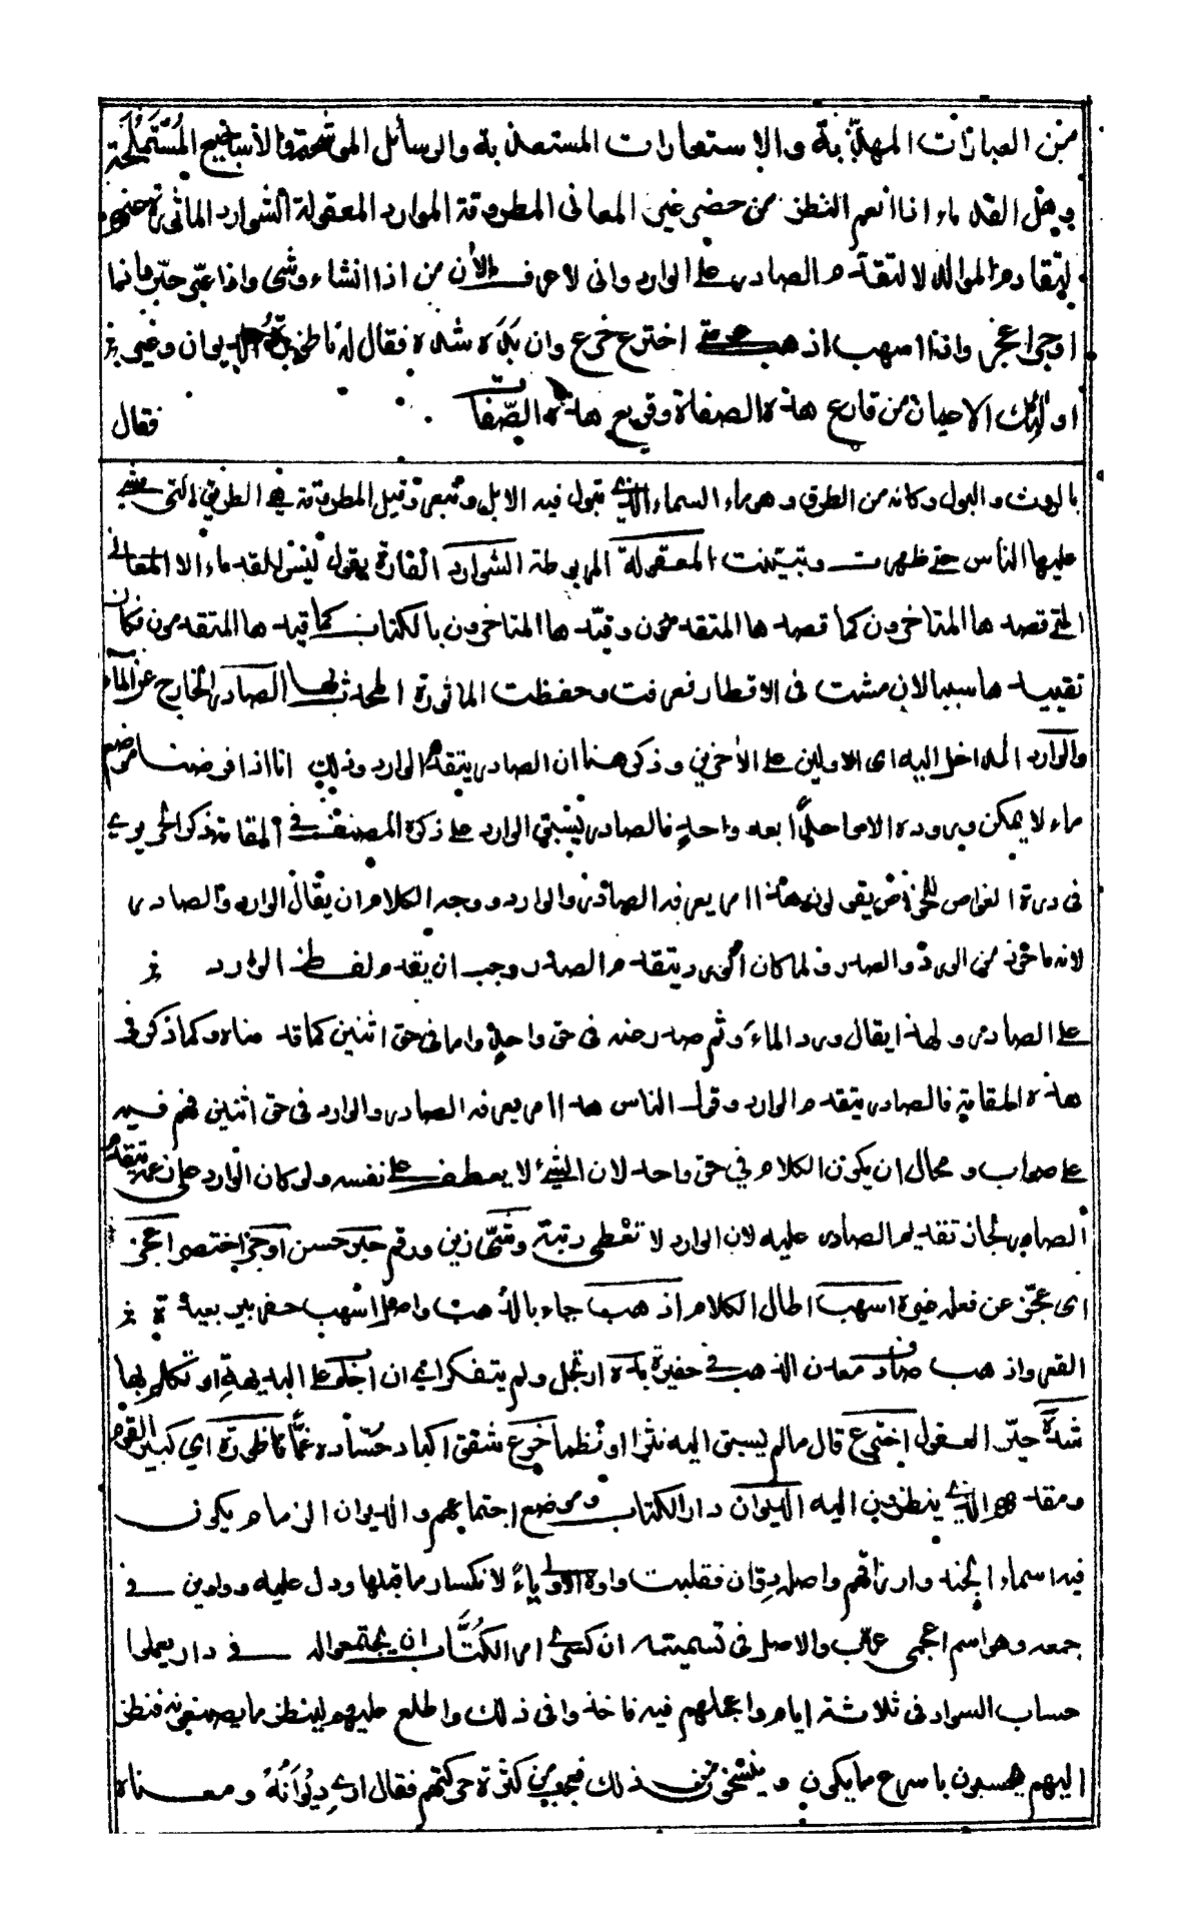 من العبارات المهذبة والاستعارات المستعذبة والرسائل الموشحة والأساجيع المستملحة
وهل للقدماء اذا انعم النظر من حضر غير المعانى المطروقة الموارد المعقولة الشوارد الماثورة عنهم
لتقادم الموالد لا لتقدم الصادر على الوارد وانى لاعرف الأن من اذا انشاء وشى واذا عبر حبر
اوجز اعجز واذا اسهب اذهب اخترع خرع وان بده شده فقال له ناظورة الديوان وعين
اولئك الاعيان من قارع هذه الصفاة وقريع هذه الصفات
فقال
بالروث والبول وكانه من الطرق وهو ماء السماء الذي تبول فيه الابل وتبعر وقيل المطروقة هي الطرق التى مشي
عليها الناس حتى ظهرت وتبينت المعقولة المربوطة الشوارد النفارة يقول ليس للقدماء الا المعانى
التى قصدها المتاخرون كما قصدها المتقدمون وقيدها المتاخرون بالكتاب كما قيدها المتقدمون فكان
تقييدها سببا لان مشت فى الاقطار فعرفت وحفظت الماثورة المحدث بها الصادر الخارج عن الماء
والوارد الداخل اليه اى الاولين على الأخرين وذكر هنا ان الصادر يتقدم الوارد وذلك انا اذا فرضنا موضع
ماء لا يمكن وروده الا واحدًا بعد واحدٍ فالصادر يسبق الوارد على ذكره المصنف في المقامة ذكر الحريري
فى درة الغواص للخواص يقولون هذا امر يعرفه الصادر والوارد ووجه الكلام ان يقال الوارد والصادر
لانه ماخوذ من الورد والصدر ولما كان الورد يتقدم الصدر وجب ان يقدم لفظ الوارد
على الصادر ولهذا يقال ورد الماء وثم صدر عنه فى حق واحدٍ واما فى حق اثنين كما قدمناه وكما ذكر فى
هذه المقامة فالصادر يتقدم الوارد وقول الناس هذا امر يعرفه الصادر والوارد فى حق اثنين فهم فيه
على صواب ومحال ان يكون الكلام في حق واحد لان الشيئ لا يعطف على نفسه ولو كان الوارد على زعمه يتقدم
الصادر لجاز تقديم الصادر عليه لان الوارد لا تعطى رتبة وشى زين ورقم حبر حسن اوجز اختصر اعجز
اى عجز عن فعله غيره اسهب اطال الكلام اذهب جاء بالذهب واصل اسهب حفر بير بعيدة
القعر واذهب صادف معدن الذهب في حفيرة بده ارتجل ولم يتفكر اي ان اخذ على البديهة او تكلم بها
شده حير العقول اخترع قال ما لم يسبق اليه نثرا او نظما خرع شقق اكباد حساده غما ناظورة اي كبير القوم
ومقدمهم الذي ينظرون اليه الديوان دار الكتاب وموضع اجتماعهم والديوان الزمام يكون
فيه اسماء الجند وارزاقهم واصله دوان فقلبت واوه الاولى ياءً لانكسار ما قبلها ودل عليه دواوين في
جمعه وهو اسم اعجمى عرب والاصل فى تسميته ان كسرى امر الكتاب ان يجتمعوا له في دار يعملوا
حساب السواد فى ثلاثة ايام واعجلهم فيه فاخذوا فى ذلك واطلع عليهم لينظر ما يصنعون فنظر
اليهم يحسبون باسرع ما يكون وينسخون كذلك فعجب من كثرة حركتهم فقال اي ديوانه ومعناه